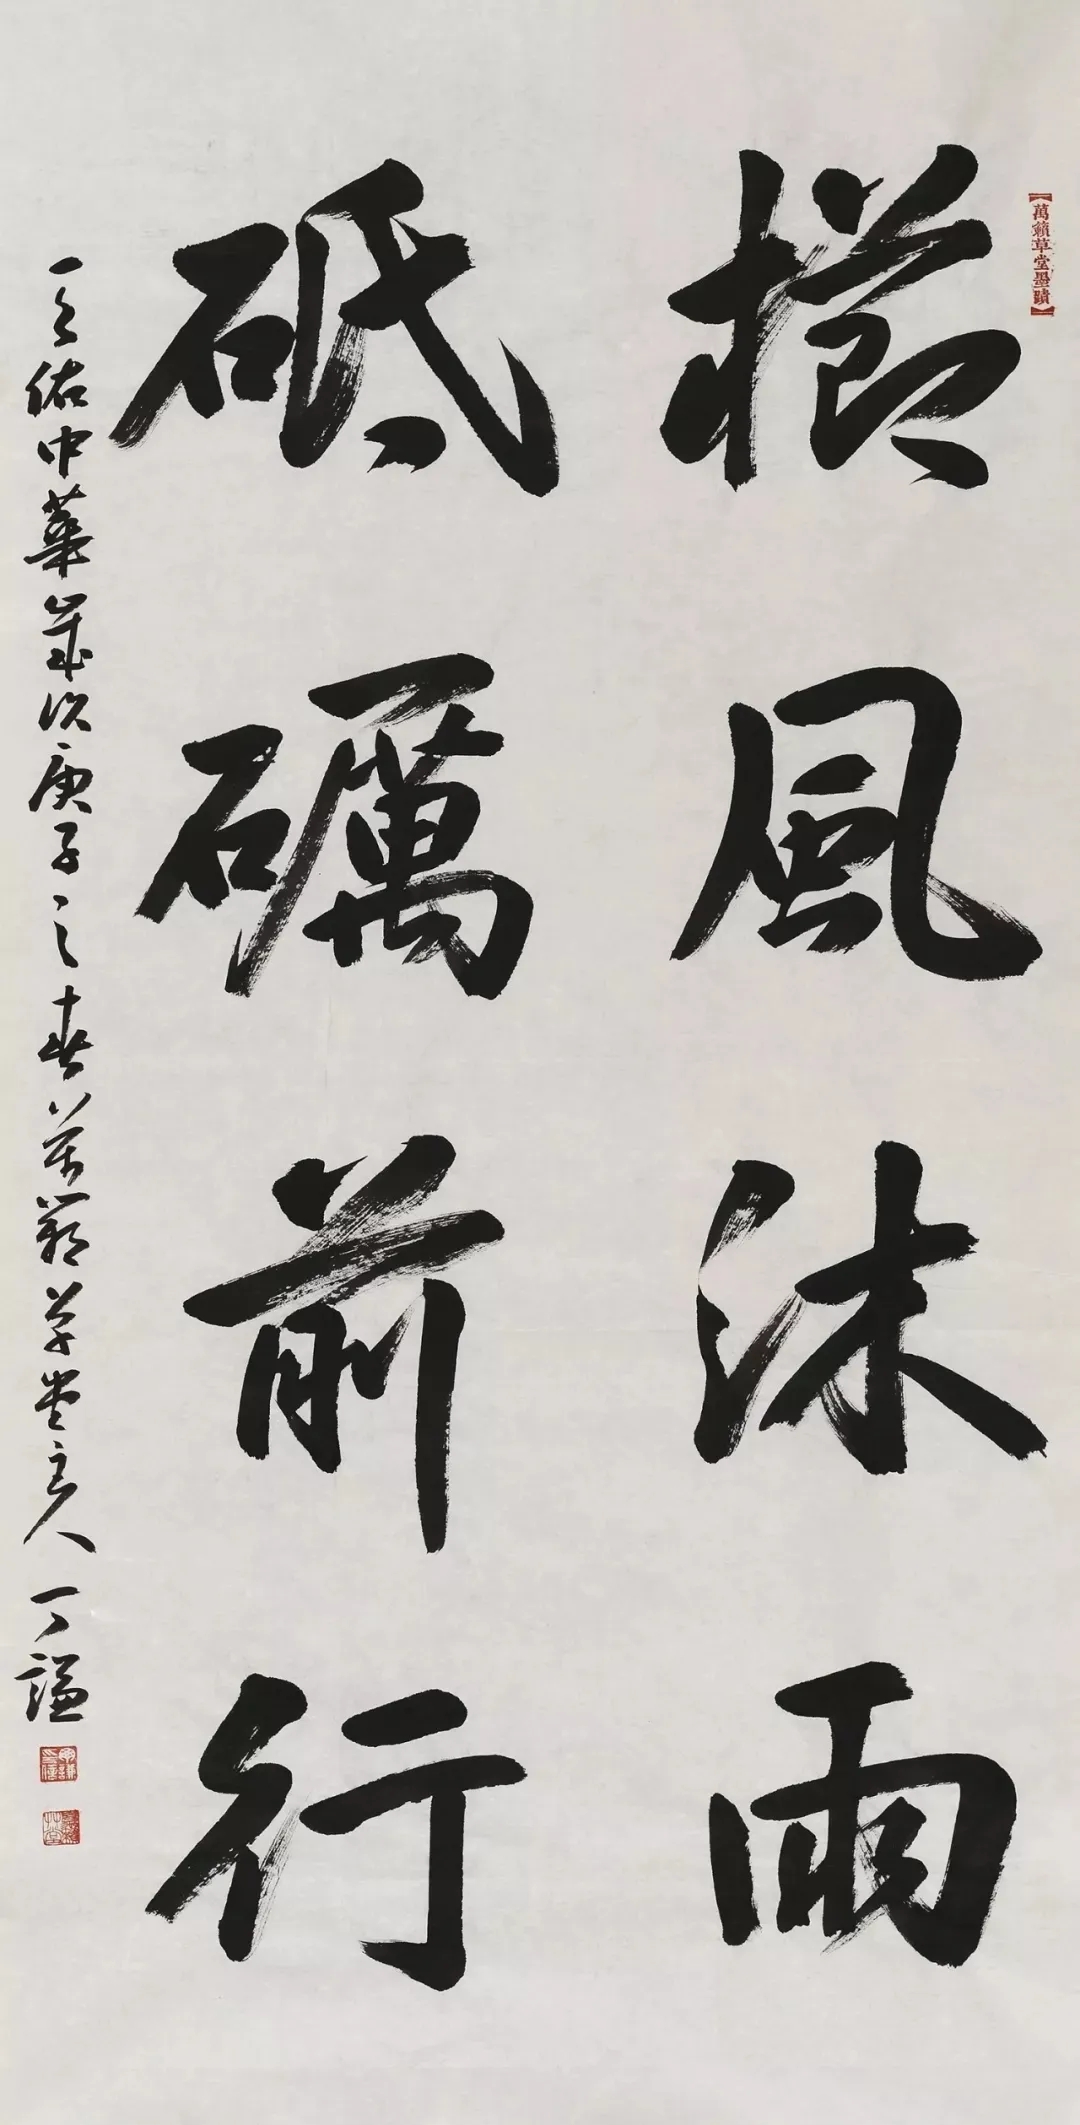 【萬籟草堂墨蹟】
栉風沐雨
砥礪前行
天佑中華歲次庚子之春萬籟草堂主人丁謙